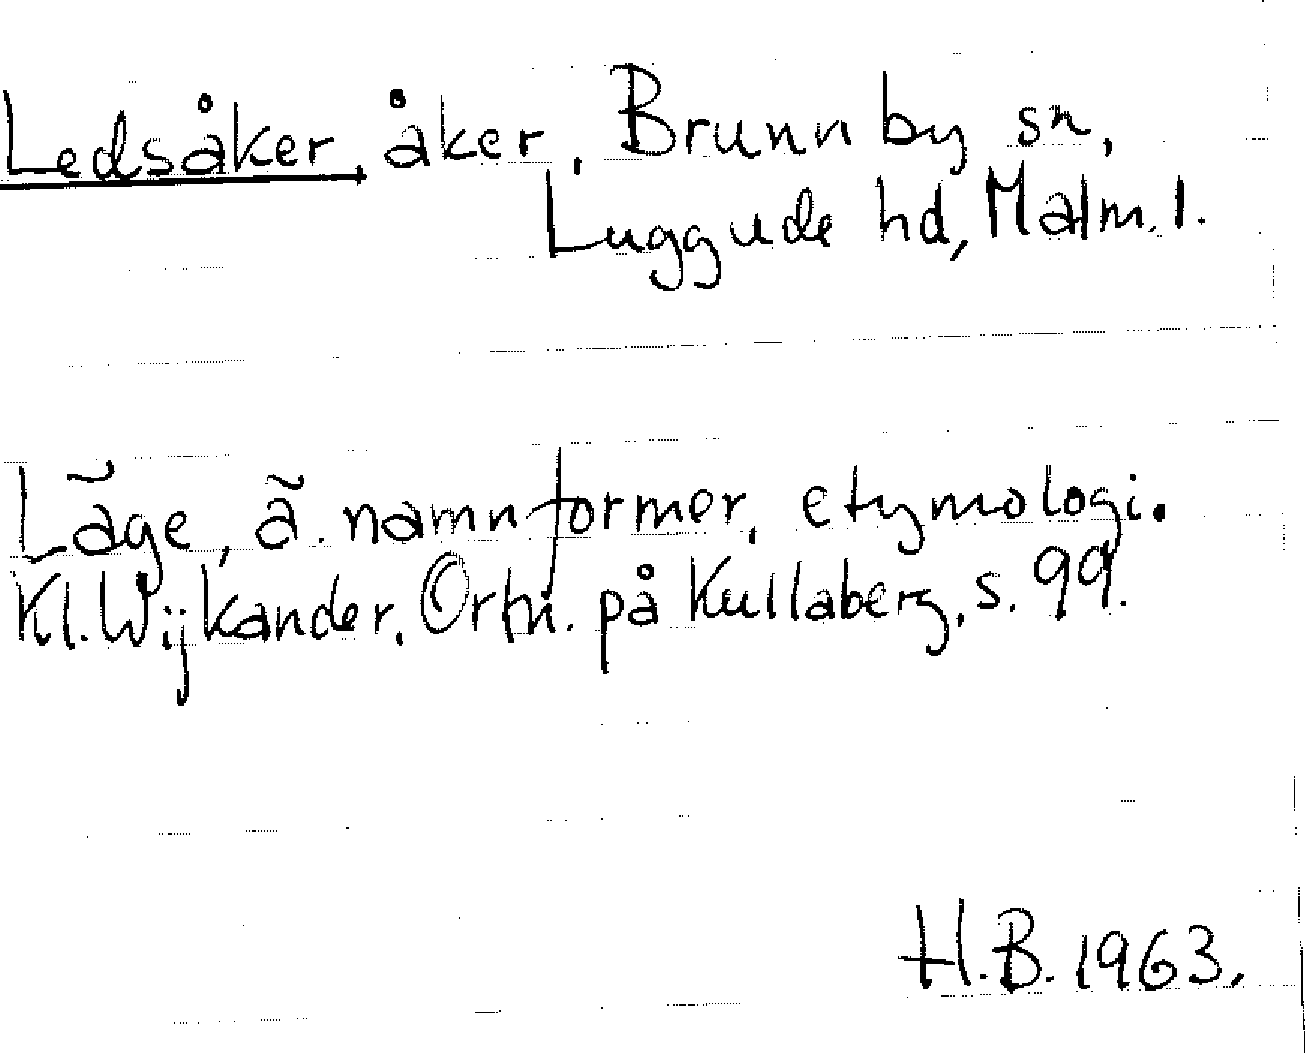 Ledsåker, åker, Brunnby sn,
Luggude hd, Malm. l.
Läge, ä. namnformer, etymologi.
Kl. Wijkander, Ortn. på Kullaberg, s. 99.
H.B. 1963.